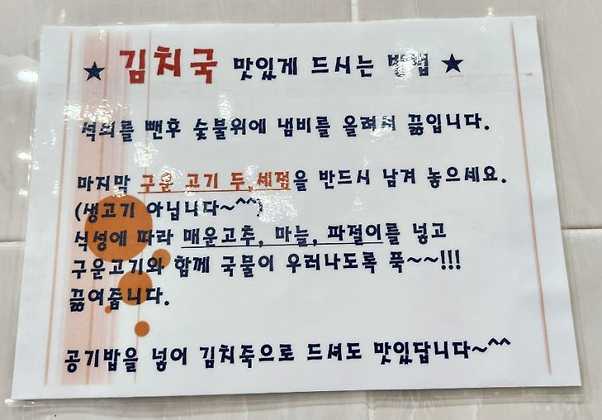 ★ 김치국 맛있게 드시는 방법 ★
석쇠를 뺀후 숯불위에 냄비를 올려서 끓입니다.
마지막 구운 고기 두,세점을 반드시 남겨 놓으세요.
(생고기 아닙니다~^^)
식성에 따라 매운고추, 마늘, 파절이를 넣고
구운고기와 함께 국물이 우러나도록 푹~~!!!
끓여줍니다.
공기밥을 넣어 김치죽으로 드셔도 맛있답니다~^^